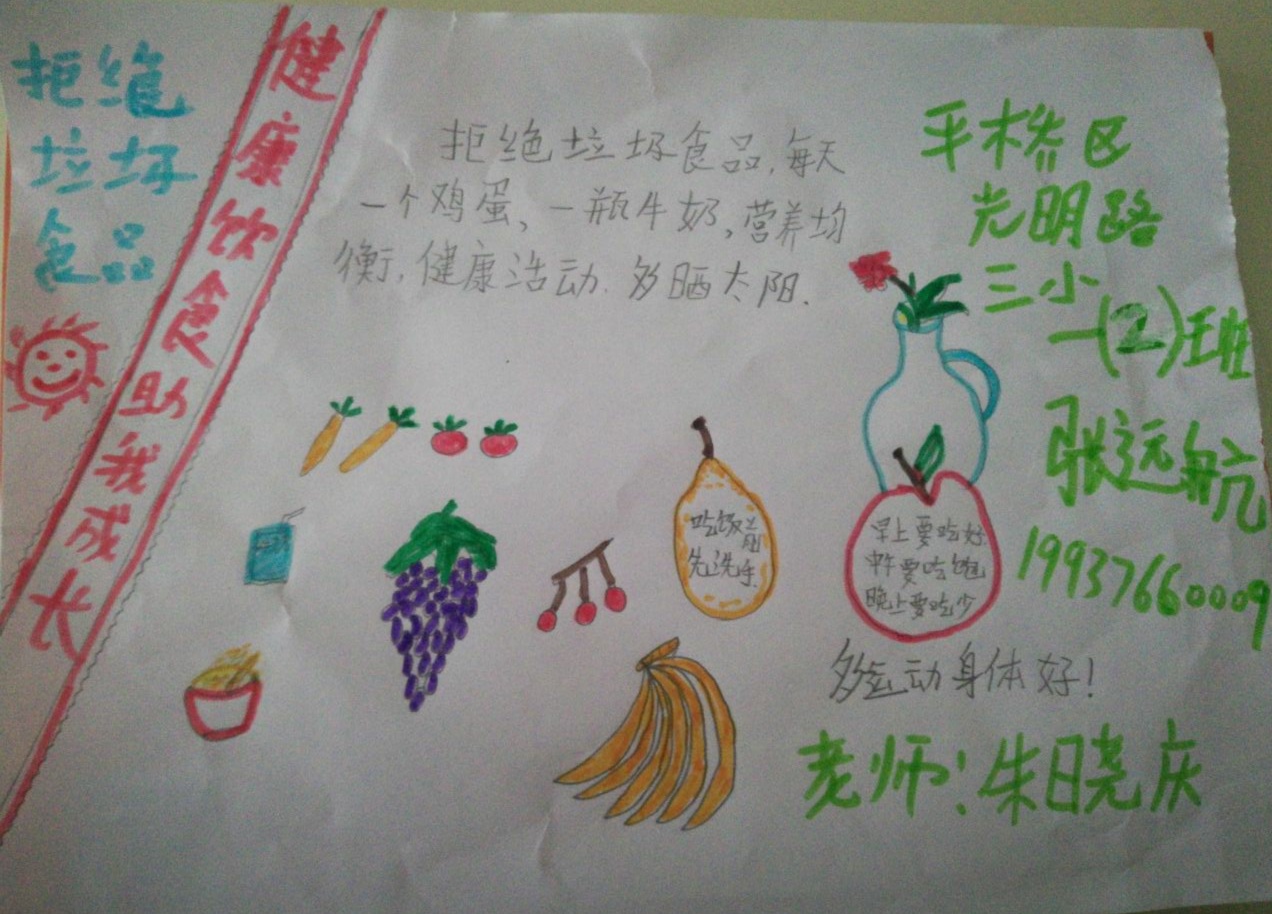 拒绝
垃圾
食品
健康饮食助我成长
拒绝垃圾食品,每天
一个鸡蛋,一瓶牛奶,营养均
衡,健康活动.多晒太阳.
平桥区
光明路
三小
一(2)班
张远航
19937660009
吃饭前
先洗手
早上要吃好
中午要吃饱
晚上要吃少
多运动身体好!
老师:朱晓庆